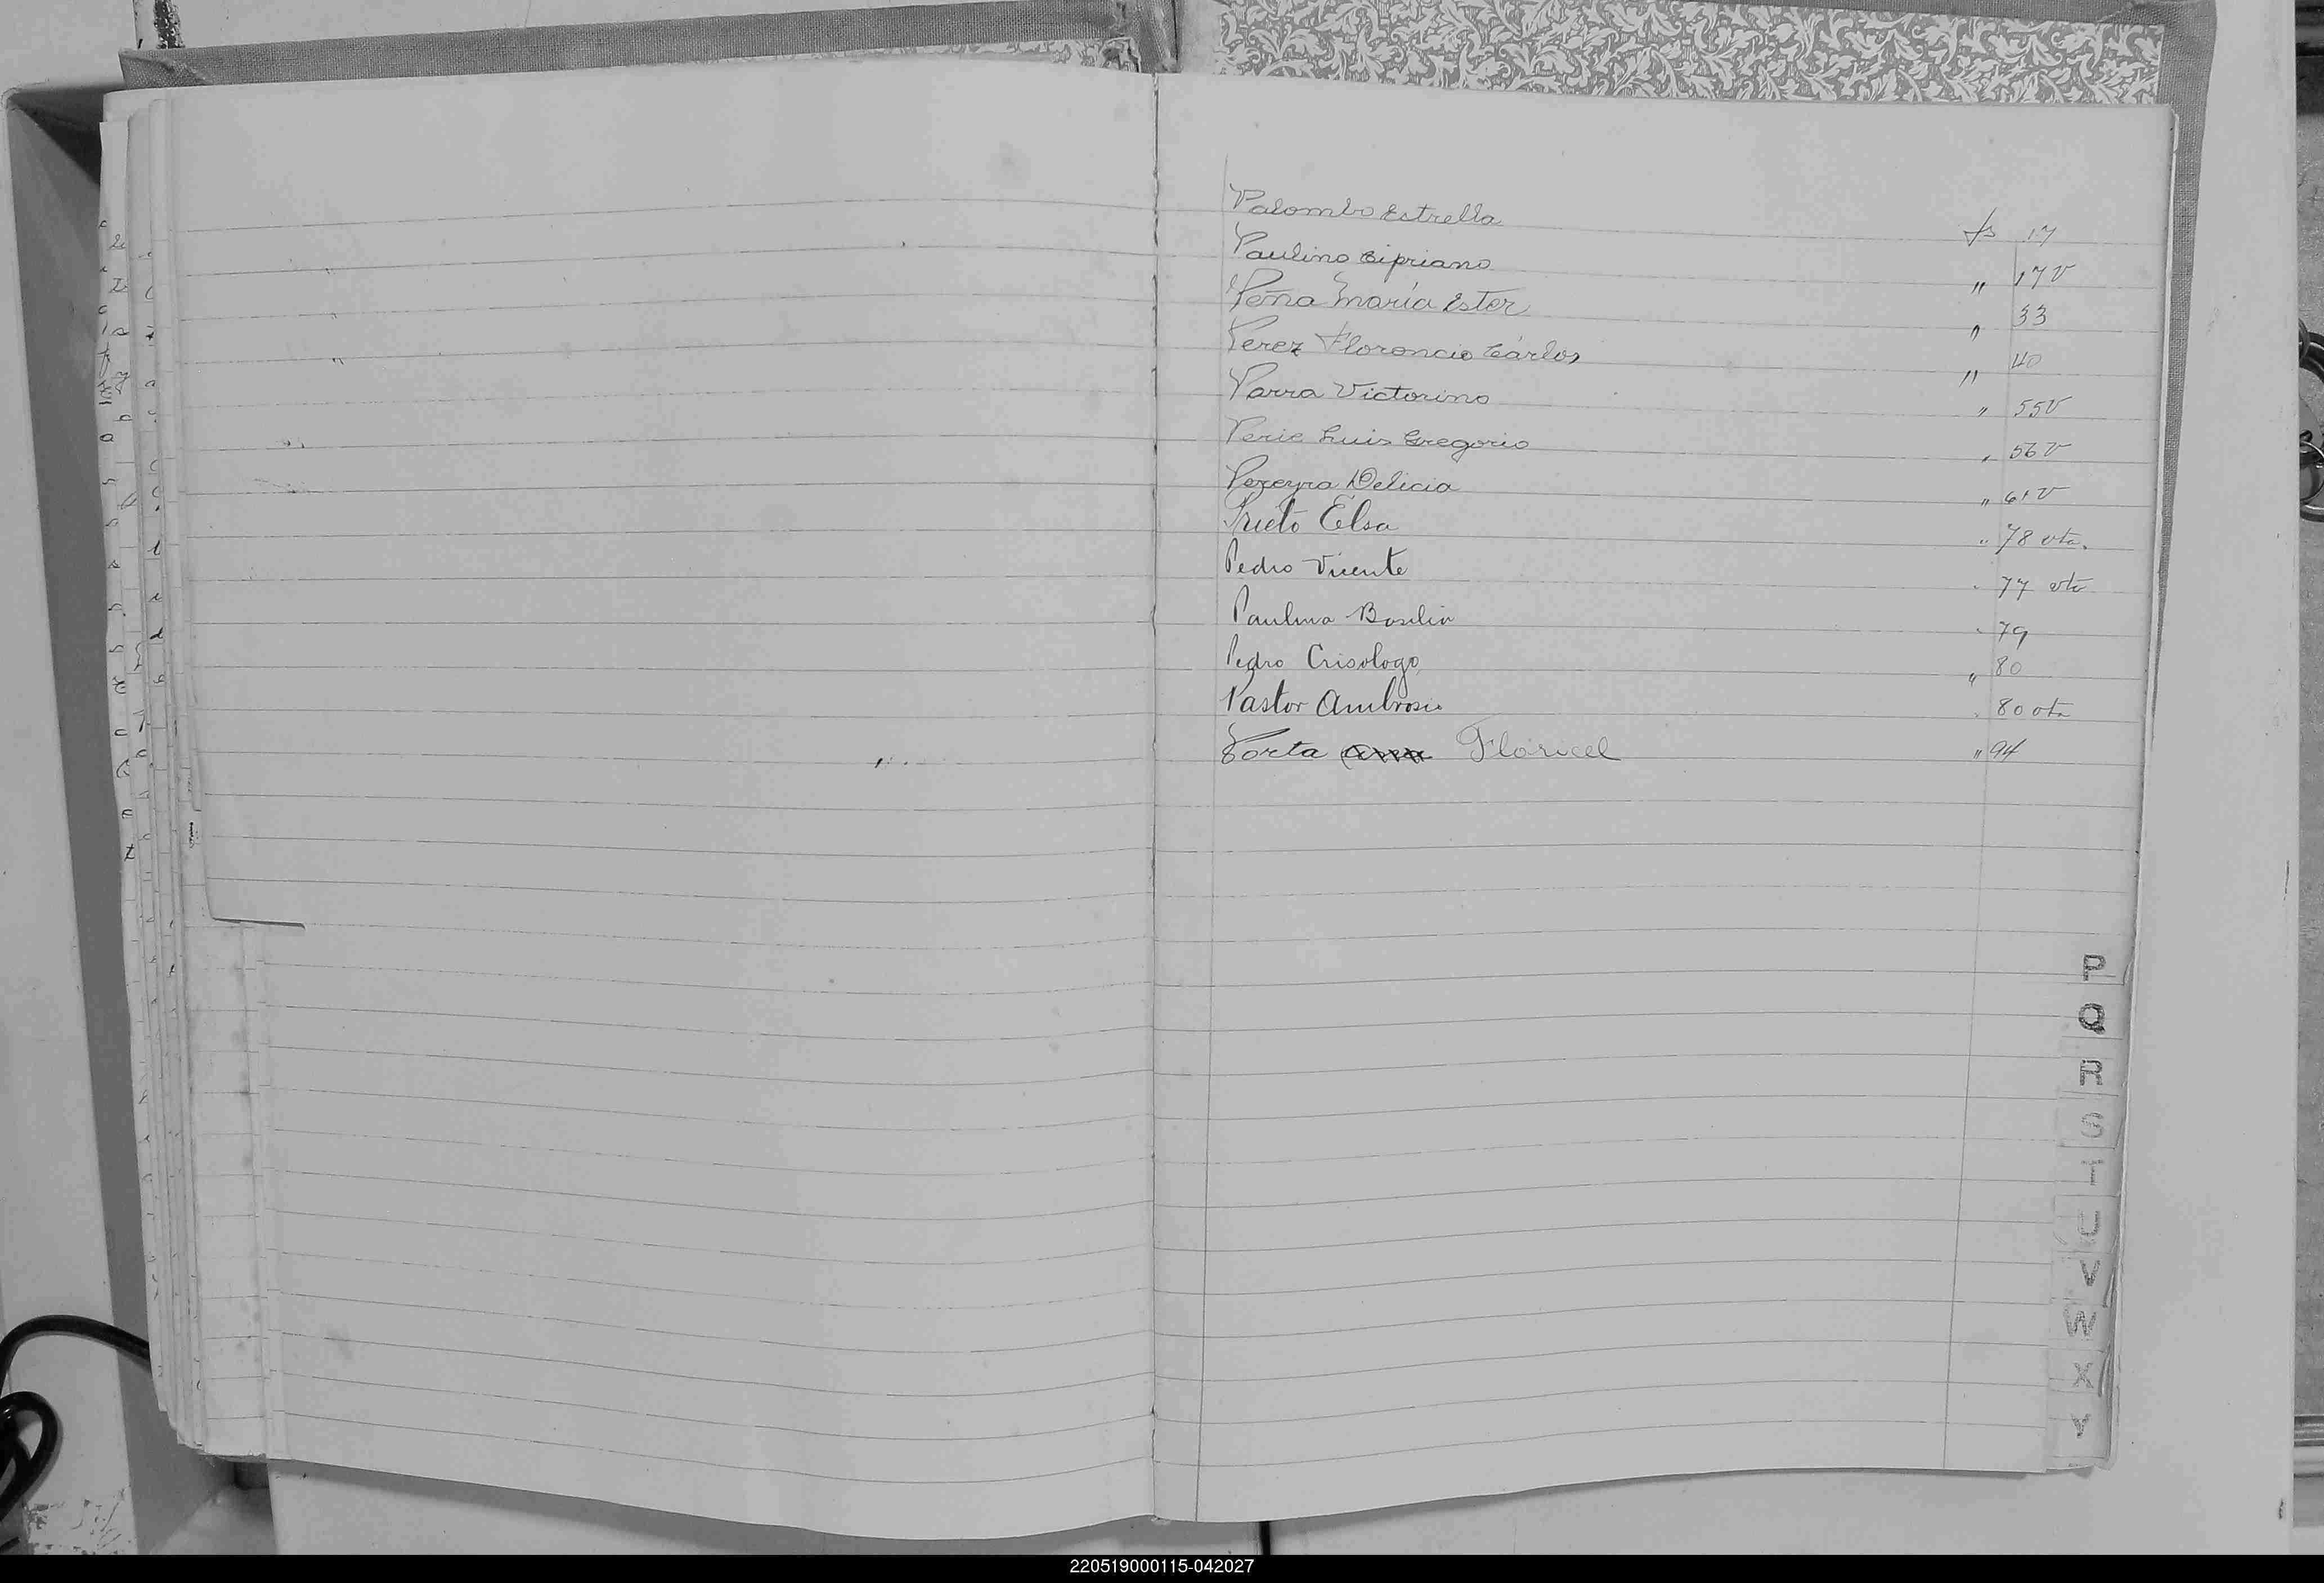 Palombo Estrella fs 17
Paulino Cipriano " 17 v
Peña María Ester " 33
Perez Florencio Cárlos " 40
Parra Victorino " 55 v
Peric Luis Gregorio " 56 v
Pereyra Delicia " 61 v
Prieto Elsa " 78 vta.
Pedro Vicente " 77 vta
Paulino Basilio " 79
Pedro Crisologo " 80
Pastor Ambrosio " 80 vta
Porta Floricel " 94
P
Q
R
S
T
U
V
W
X
Y
220519000115-042027